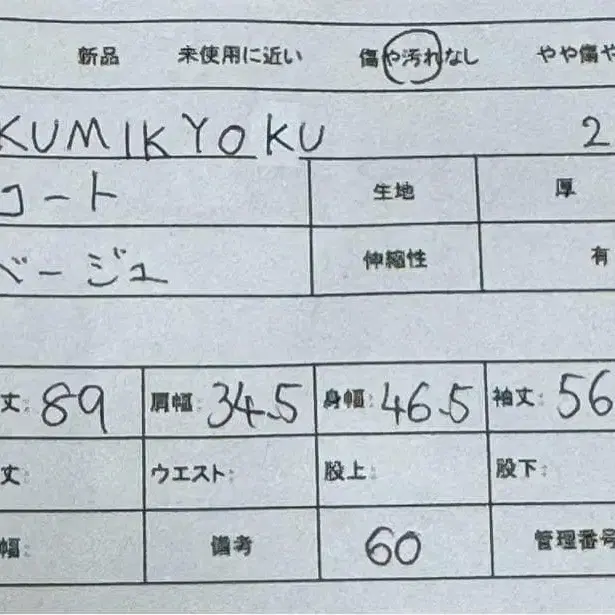 新品 未使用に近い 傷や汚れなし やや傷や
KUMIKYOKU 2
コート 生地 厚
ベージュ 伸縮性 有
丈: 89 肩幅: 34.5 身幅: 46.5 袖丈: 56
丈: ウエスト: 股上: 股下:
幅: 備考 60 管理番号